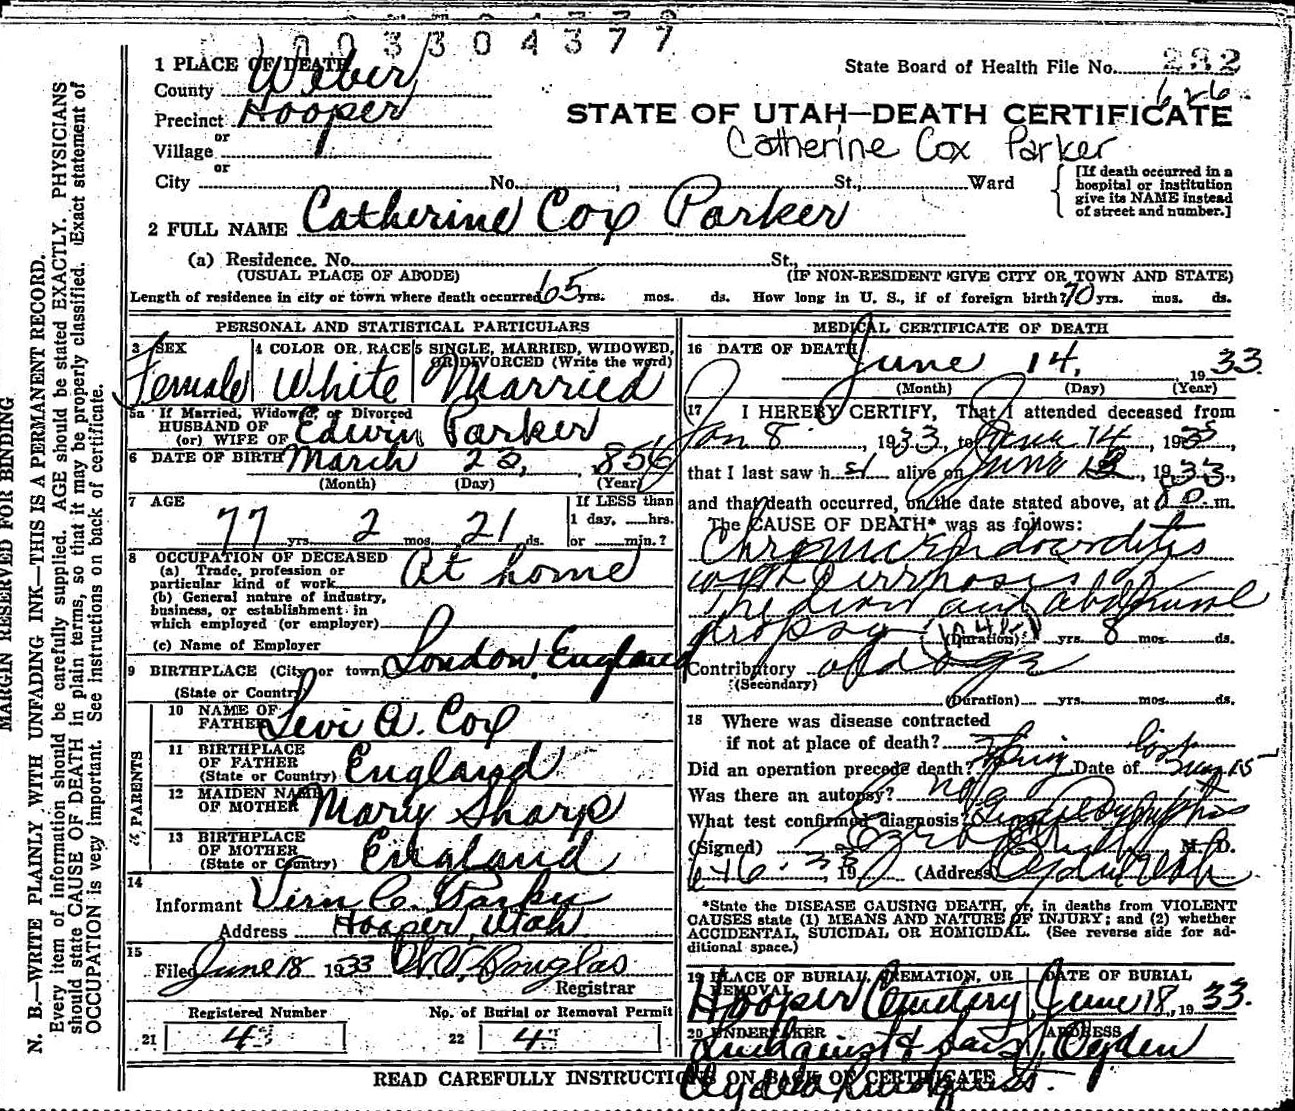 1003304377
1 PLACE OF DEATH
County Weber
State Board of Health File No. 232
626
Precinct Hooper
STATE OF UTAH—DEATH CERTIFICATE
or
Village
Catherine Cox Parker
or
City No. , St., Ward
[If death occurred in a hospital or institution give its NAME instead of street and number.]
2 FULL NAME Catherine Cox Parker
(a) Residence. No. St.,
(USUAL PLACE OF ABODE) (IF NON-RESIDENT GIVE CITY OR TOWN AND STATE)
Length of residence in city or town where death occurred 65 yrs. mos. ds. How long in U. S., if of foreign birth? 70 yrs. mos. ds.
PERSONAL AND STATISTICAL PARTICULARS
3 SEX 4 COLOR OR RACE 5 SINGLE, MARRIED, WIDOWED, OR DIVORCED (Write the word)
Female White Married
5a If Married, Widowed, or Divorced
HUSBAND OF
(or) WIFE OF Edwin Parker
6 DATE OF BIRTH March 23, 856
(Month) (Day) (Year)
7 AGE If LESS than
77 yrs. 2 mos. 21 ds. 1 day, hrs.
or min.?
8 OCCUPATION OF DECEASED
(a) Trade, profession or
particular kind of work At home
(b) General nature of industry,
business, or establishment in
which employed (or employer)
(c) Name of Employer
9 BIRTHPLACE (City or town) London, England
(State or Country)
PARENTS
10 NAME OF
FATHER Levi A. Cox
11 BIRTHPLACE
OF FATHER
(State or Country) England
12 MAIDEN NAME
OF MOTHER Marry Sharp
13 BIRTHPLACE
OF MOTHER
(State or Country) England
14
Informant Vern C. Parker
Address Hooper, Utah
15
Filed June 18 1933 Douglas
Registrar
Registered Number No. of Burial or Removal Permit
21 43 22 43
MEDICAL CERTIFICATE OF DEATH
16 DATE OF DEATH June 14, 1933
(Month) (Day) (Year)
17 I HEREBY CERTIFY, That I attended deceased from
Jan 8, 1933, to June 14, 1933,
that I last saw h er alive on June 13, 1933,
and that death occurred, on the date stated above, at 8 m.
The CAUSE OF DEATH* was as follows:
Chronic Endocarditis
with cirrhosis of
the liver and abdominal
dropsy (Duration) yrs. 8 mos. ds.
Contributory old age
(Secondary)
(Duration) yrs. mos. ds.
18 Where was disease contracted
if not at place of death?
Did an operation precede death? Date of
Was there an autopsy? no
What test confirmed diagnosis?
(Signed) Ezra M. D.
6-16-33 19 (Address Ogden Utah
*State the DISEASE CAUSING DEATH, or, in deaths from VIOLENT
CAUSES state (1) MEANS AND NATURE OF INJURY; and (2) whether
ACCIDENTAL, SUICIDAL OR HOMICIDAL. (See reverse side for ad-
ditional space.)
19 PLACE OF BURIAL, CREMATION, OR REMOVAL DATE OF BURIAL
Hooper Cemetery June 18, 1933.
20 UNDERTAKER ADDRESS
Lindquist & Sons Ogden
READ CAREFULLY INSTRUCTIONS ON BACK OF CERTIFICATE
MARGIN RESERVED FOR BINDING
N. B.—WRITE PLAINLY WITH UNFADING INK—THIS IS A PERMANENT RECORD.
Every item of information should be carefully supplied. AGE should be stated EXACTLY. PHYSICIANS
should state CAUSE OF DEATH in plain terms, so that it may be properly classified. Exact statement of
OCCUPATION is very important. See instructions on back of certificate.